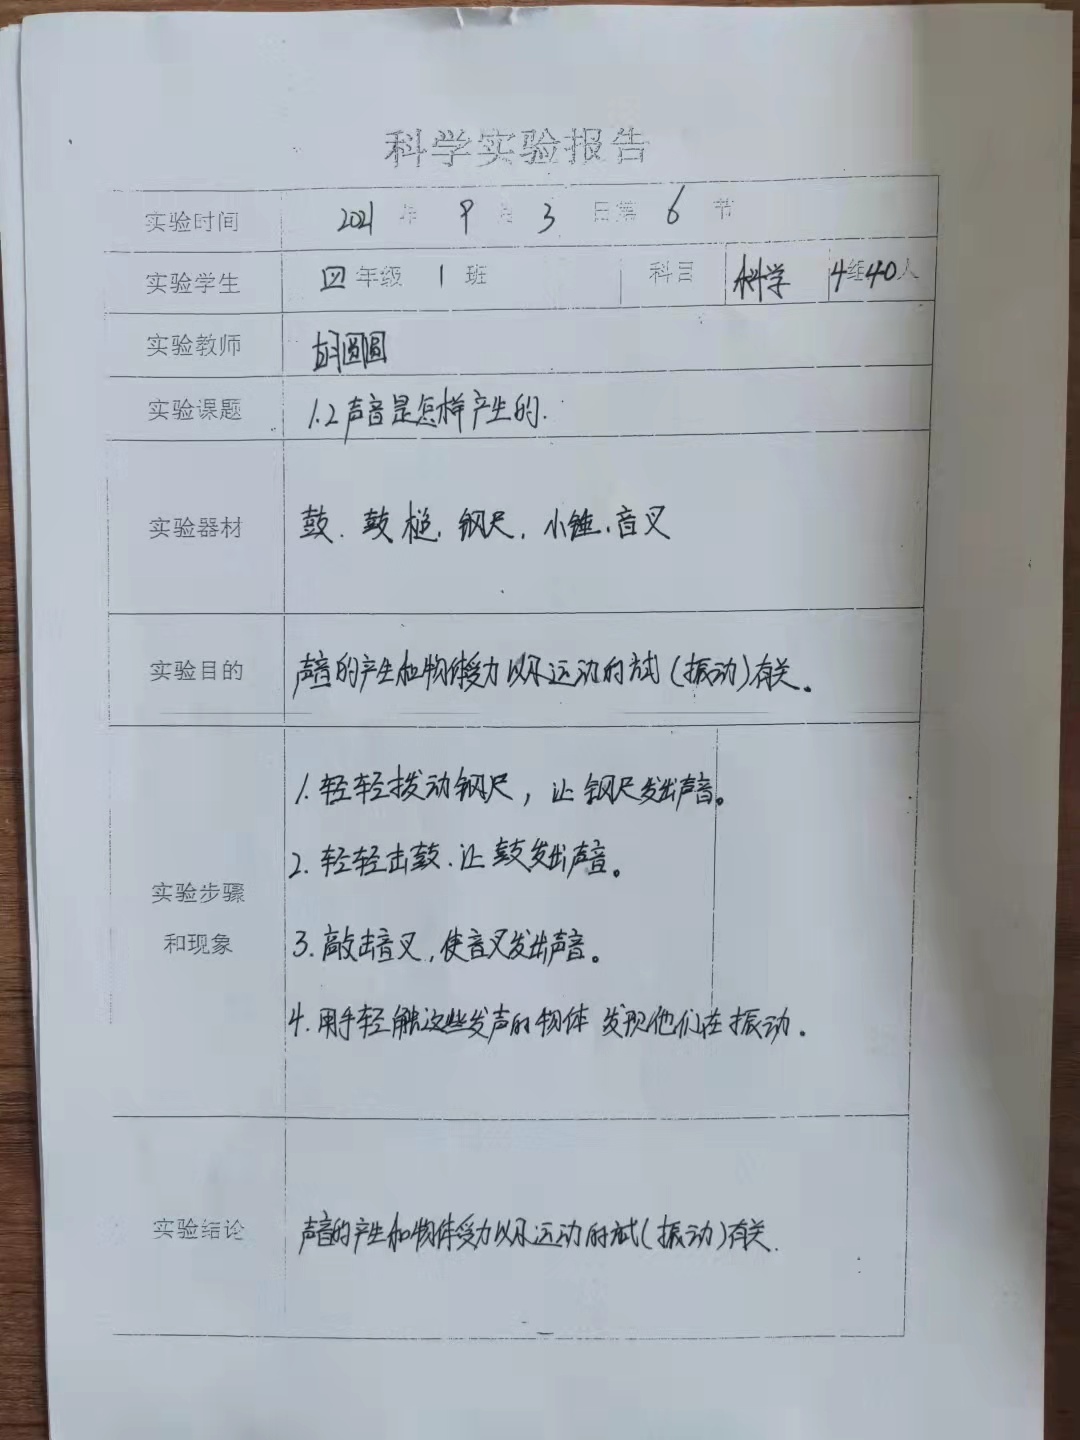 科学实验报告
实验时间 2021 年 9 月 3 日第 6 节
实验学生 四年级 1 班 科目 科学 4组40人
实验教师 胡圆圆
实验课题 1.2声音是怎样产生的.
实验器材 鼓、鼓槌,钢尺,小锤、音叉
实验目的 声音的产生和物体受力以及运动的方式(振动)有关。
1.轻轻拨动钢尺,让钢尺发出声音。
2.轻轻击鼓.让鼓发出声音。
实验步骤
和现象
3.敲击音叉,使音叉发出声音。
4.用手轻触这些发声的物体 发现他们在振动。
实验结论 声音的产生和物体受力以及运动的方式(振动)有关.